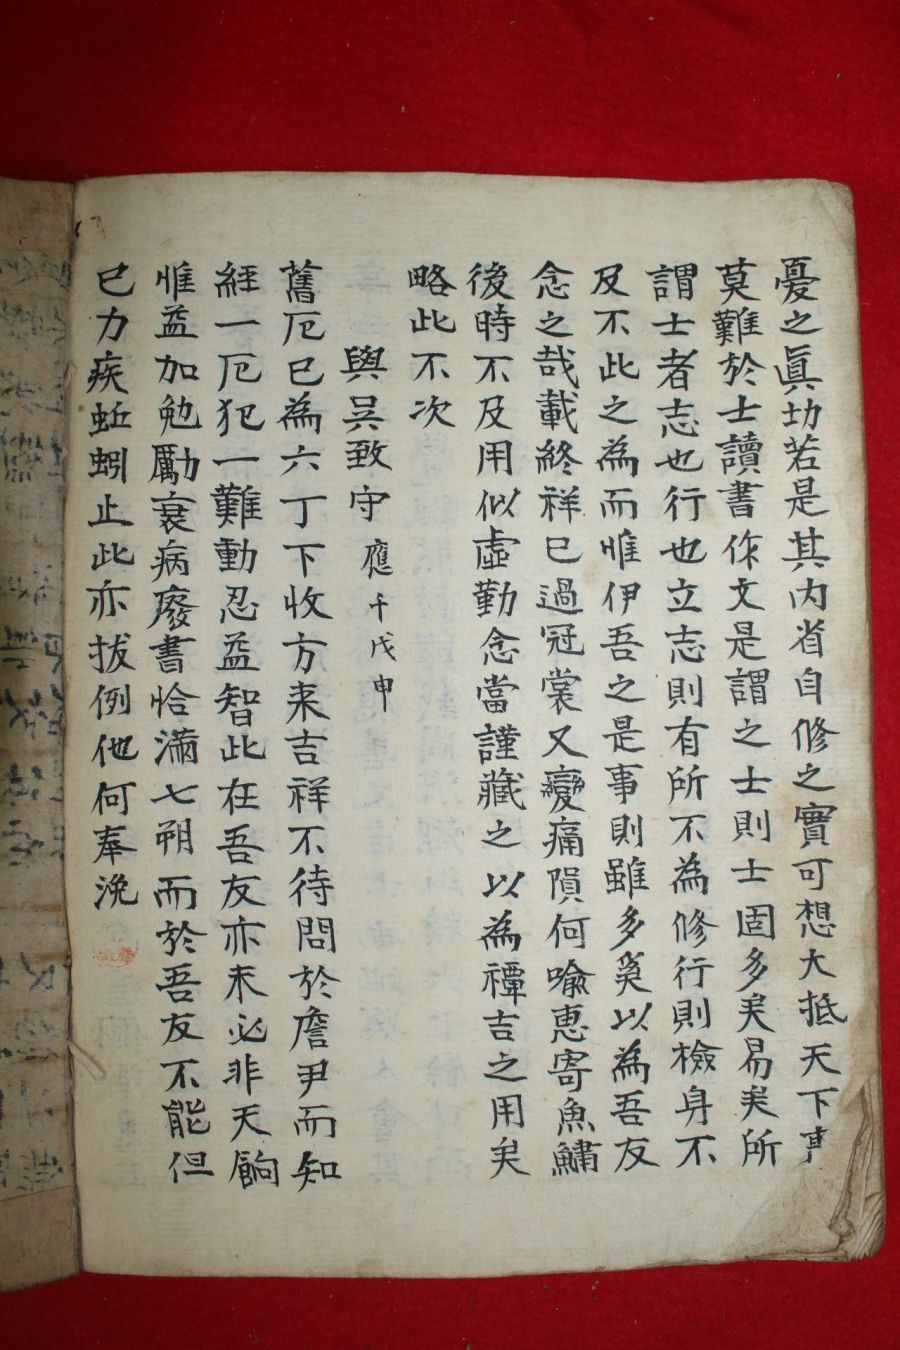 憂之眞功若是其內省自修之實可想大抵天下事
莫難於士讀書作文是謂之士則士固多矣易矣所
謂士者志也行也立志則有所不為修行則檢身不
及不此之為而惟伊吾之是事則雖多奚以為吾友
念之哉載終祥已過冠裳又變痛隕何喩惠寄魚鱐
後時不及用似虛勤念當謹藏之以為禫吉之用矣
略此不次
與吳致守 應千戊申
舊厄已為六丁下收方来吉祥不待問於詹尹而知
経一厄犯一難動忍益智此在吾友亦未必非天餉
惟益加勉勵衰病廢書恰滿七朔而於吾友不能但
已力疾蚯蚓止此亦拔例他何奉浼